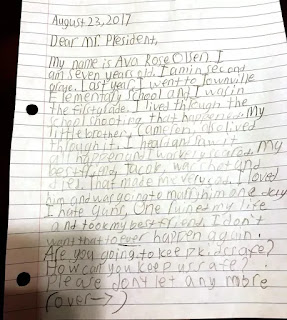 August 23, 2017
Dear Mr. President,
My name is Ava Rose Olsen I
am seven years old. I am in second
grade. Last year I went to Townville
Elementary School and I was in
the first grade. I lived through the
school shooting that happened. My
little brother, Cameron, also lived
through it. I heard and saw it
all happen and I was very scared. My
best friend, Jacob, was shot and
died. That made me very sad. I loved
him and was going to marry him one day.
I hate guns. One ruined my life
and took my best friend. I don't
want that to ever happen again.
Are you going to keep kids safe?
How can you keep us safe?
Please don't let any more
(over→)